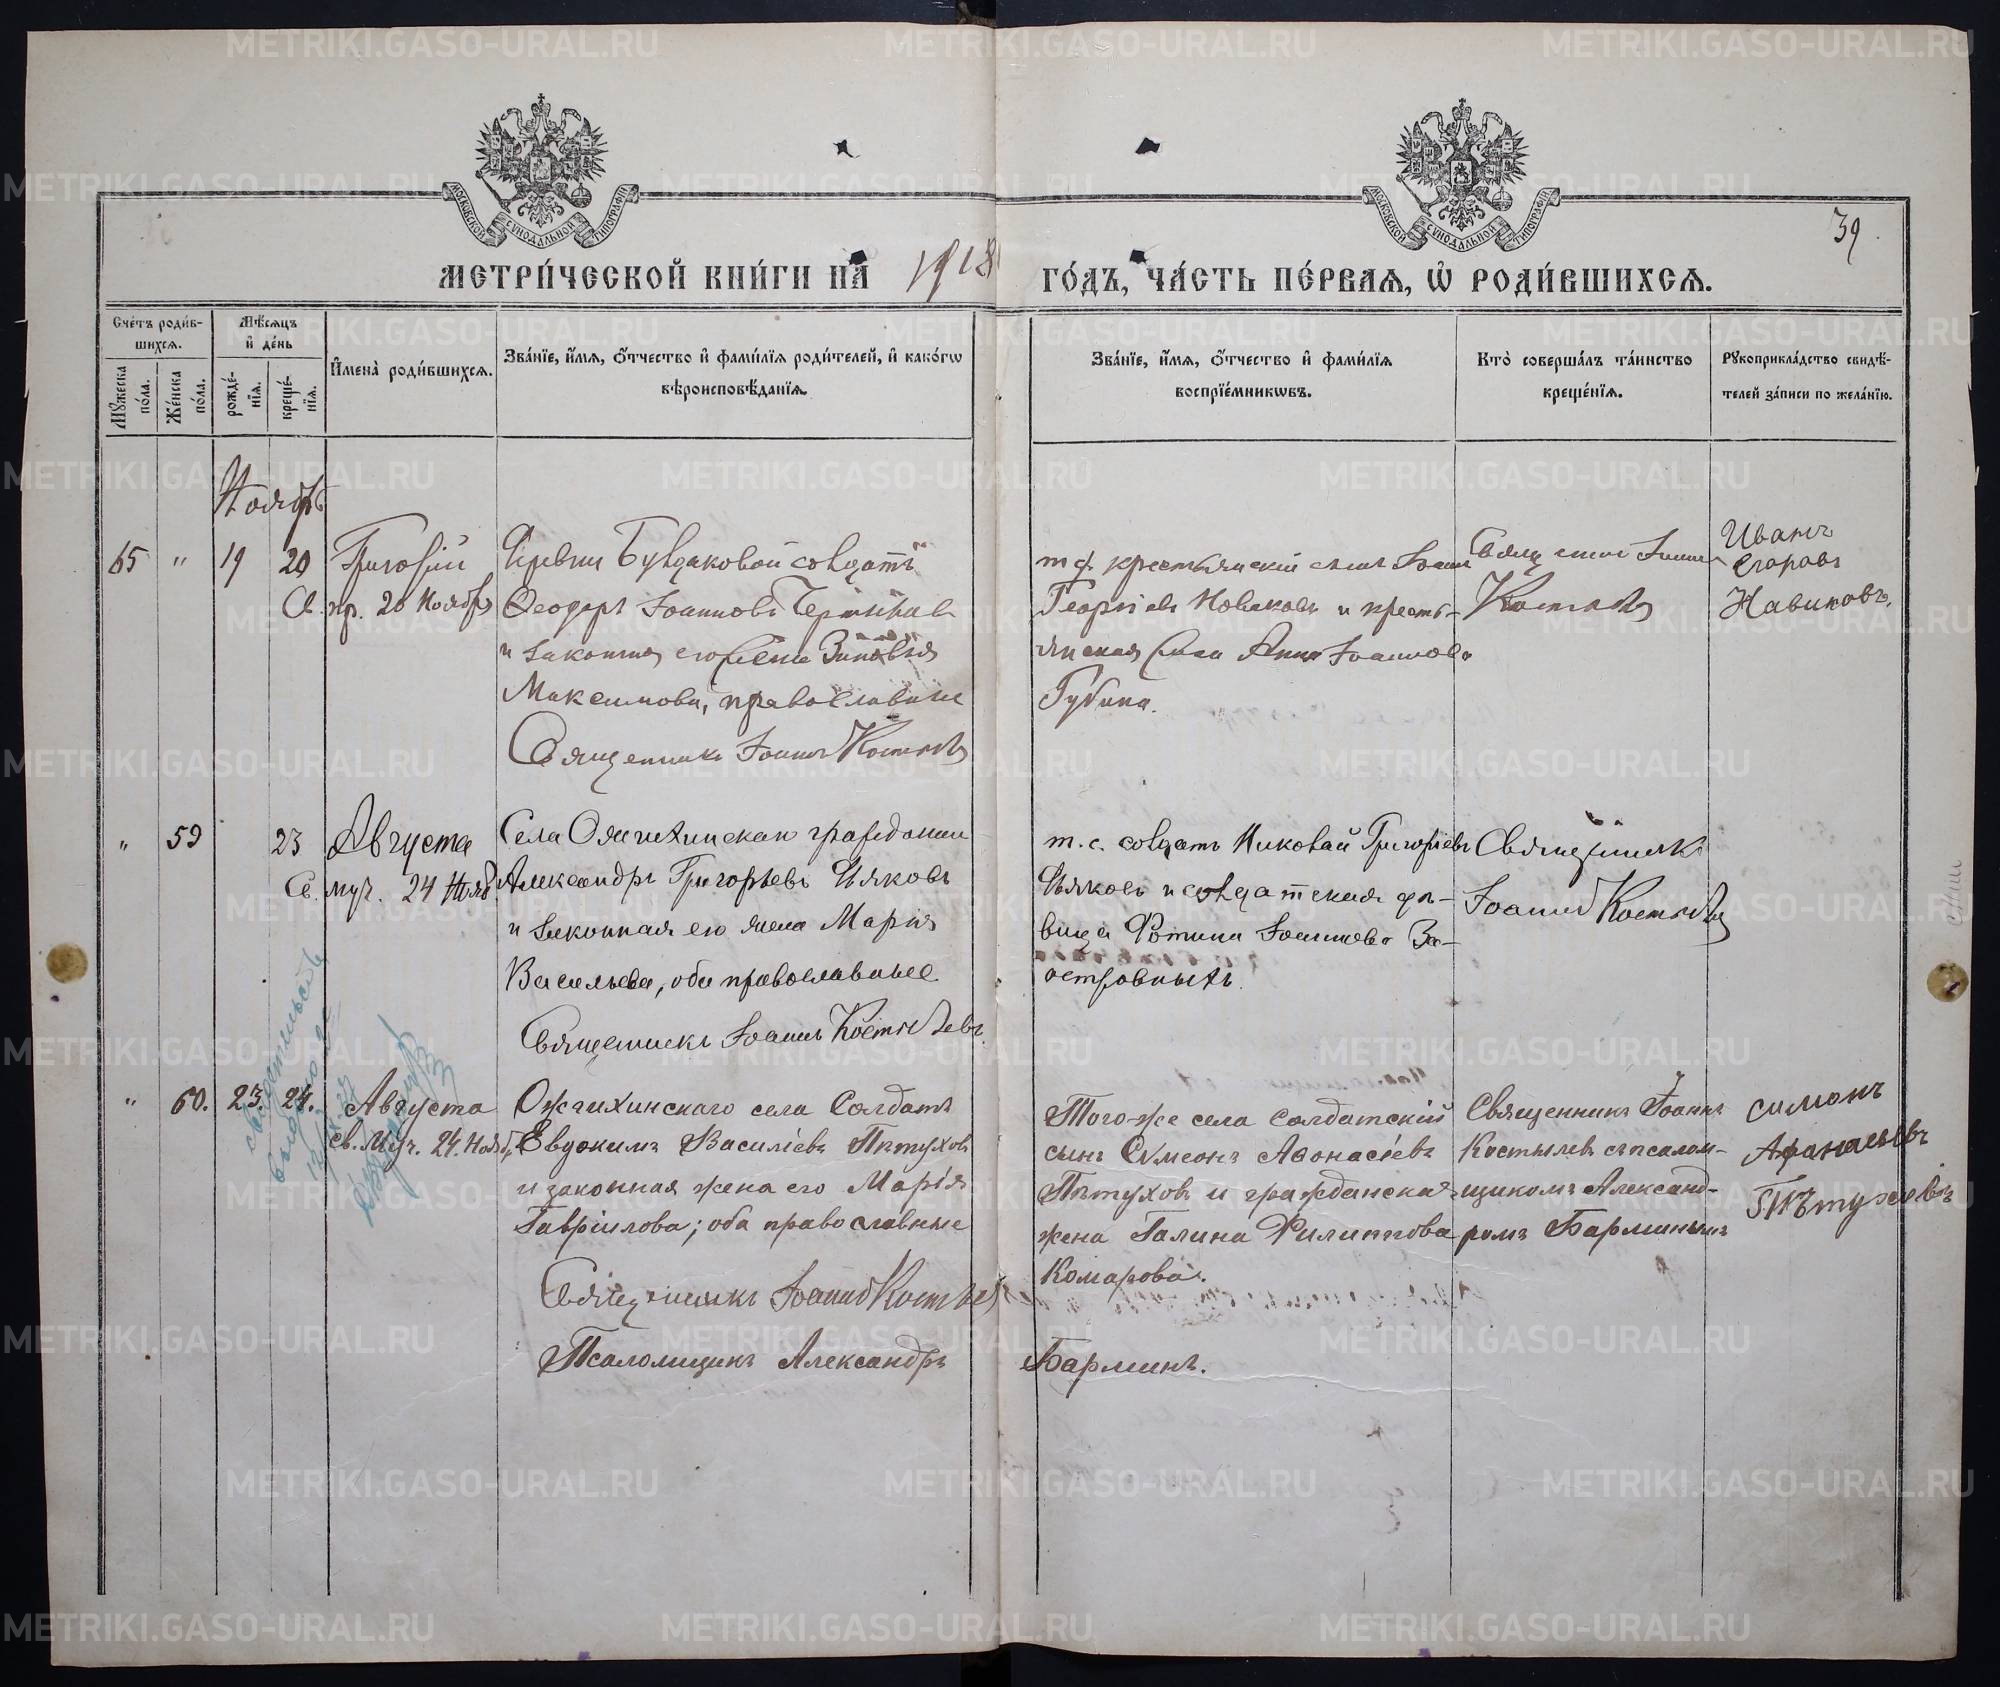 МОСКОВСКОЙ СѴНОДАЛЬНОЙ ТИПОГРАФІИ
МОСКОВСКОЙ СѴНОДАЛЬНОЙ ТИПОГРАФІИ
39.
МЕТРИ́ЧЕСКОЙ КНИ́ГИ НА̀ 1918 ГО́ДЪ, ЧА́СТЬ ПЕ́РВАѦ, Ѡ҆ РОДИ́ВШИХСѦ.
Сче́тъ роди́в-
шихсѧ.
Мꙋ́жеска по́ла.
Же́нска по́ла.
Мѣ́сѧцъ
и҆ де́нь
рожде́-
нїѧ.
креще́-
нїѧ.
И҆мена̀ роди́вшихсѧ.
Зва́нїе, и҆́мѧ, ѻ҆́тчество и҆ фами́лїѧ роди́телей, и҆ како́гѡ
вѣроисповѣ́данїѧ.
Зва́нїе, и҆́мѧ, ѻ҆́тчество и҆ фами́лїѧ
воспрїе́мникѡвъ.
Кто̀ соверша́лъ та́инство
креще́нїѧ.
Рꙋкоприкла́дство свидѣ́-
телей за́писи по жела́нїю.
Ноябрь
65 " 19 20 Григорій
Св. пр. 20 Ноября
Деревни Бурдаковой солдатъ
Ѳеодоръ Іоанновъ
и законная его жена Зиновія
Максимова, православные
Священникъ Іоаннъ Костылевъ
т. д. крестьянскій сынъ Іоаннъ
Георгіевъ Новиковъ и кресть-
янская Анна Іоаннова
Губина.
Священник Іоаннъ
Костылевъ
Иванъ
Егоровъ
Навиковъ.
" 59 23 Августа
Св. муч. 24 Нояб.
Села Ожгихинскаго гражданин
Александръ Григорьевъ Дьяковъ
и законная его жена Марія
Васильева, оба православные
Священникъ Іоаннъ Костылевъ
т. с. солдатъ Николай Григорьевъ
Дьяковъ и солдатская дѣ-
вица Фотина Іоаннова За-
островныхъ.
Священникъ
Іоаннъ Костылевъ
" 60. 23. 24. Августа
св. Муч. 24. Нояб.
Ожгихинскаго села Солдатъ
Евдокимъ Василіевъ Пѣтуховъ
и законная жена его Марія
Гавріилова; оба православные
Священникъ Іоаннъ Костылевъ
Псаломщикъ Александръ Барминъ.
Того-же села солдатскій
сынъ Сѵмеонъ Аѳонасіевъ
Пѣтуховъ и гражданская
жена Галина Филиппова
Комарова.
Священникъ Іоаннъ
Костылевъ съ псалом-
щикомъ Александ-
ромъ Барминымъ
Симонъ
Афанасьевъ
Пѣтуховъ
METRIKI.GASO-URAL.RU